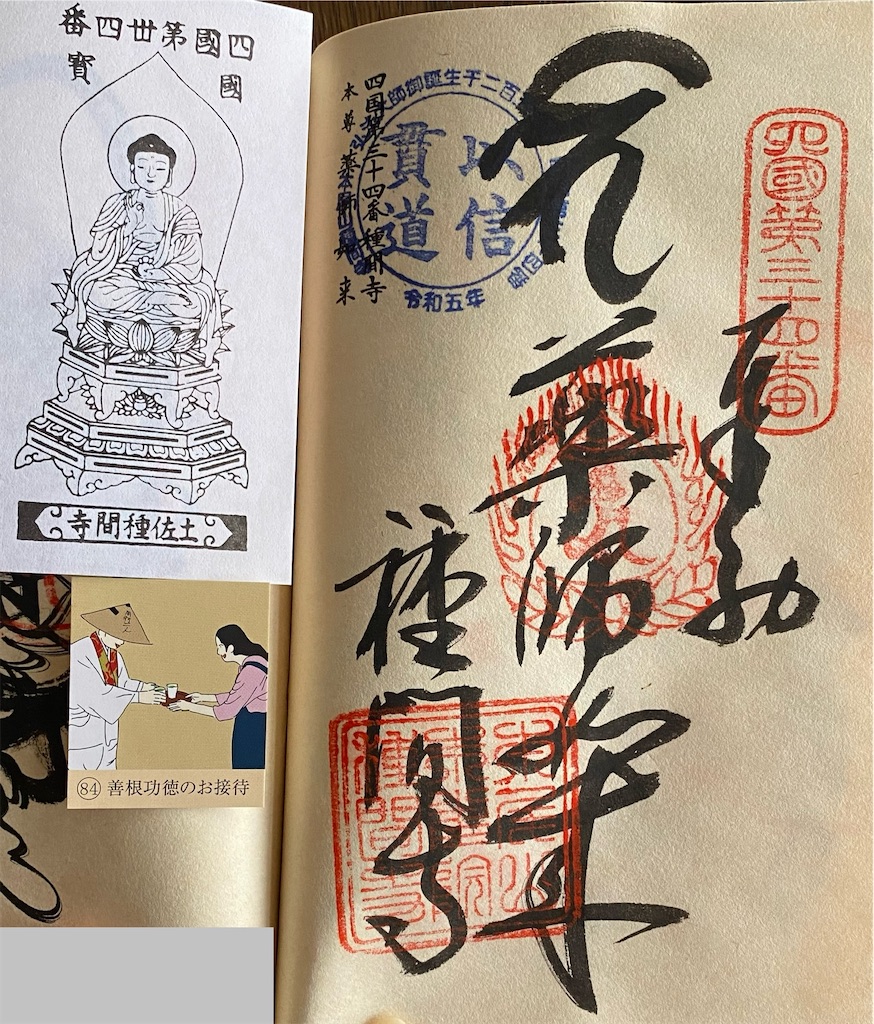 四國第丗四番
國寶
土佐種間寺
84 善根功徳のお接待
四國第三十四番
薬師如来
種間寺
師御誕生千二百
以信貫道
令和五年
四国第三十四番種間寺
本尊 薬師如来